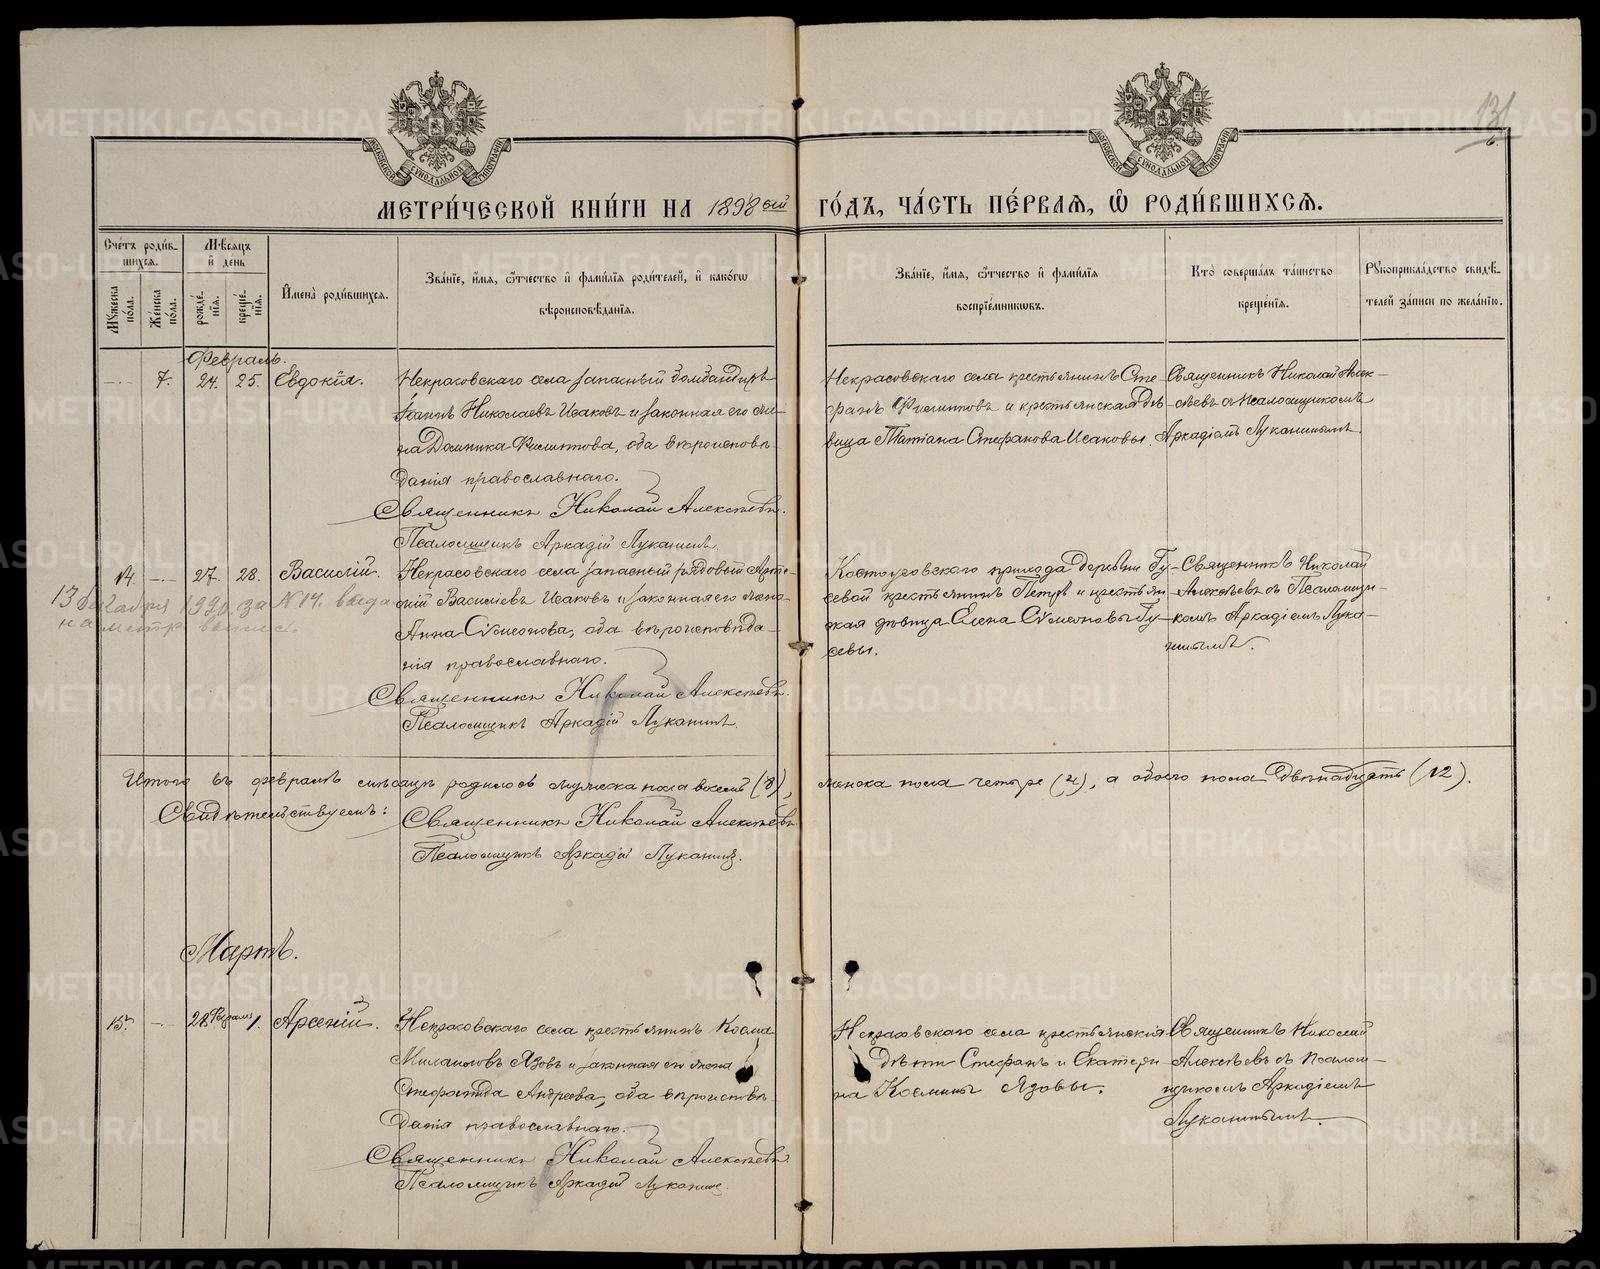 131
МОСКОВСКОЙ СѴНОДАЛЬНОЙ ТИПОГРАФІИ
МОСКОВСКОЙ СѴНОДАЛЬНОЙ ТИПОГРАФІИ
МЕТРИ́ЧЕСКОЙ КНИ́ГИ НА 1898ой ГО́ДЪ, ЧА́СТЬ ПЕ́РВАЯ, Ѽ РОДИ́ВШИХСЯ.
Сче́тъ роди́вшихся.
Мꙋжеска по́ла.
Же́нска по́ла.
Мѣсяцъ и҆ день
рожде́нїя.
креще́нїя.
И҆мена̀ роди́вшихся.
Зва́нїе, и҆́мя, ѻ҆́тчество и҆ фами́лїя роди́телей, и҆ како́гѡ
вѣроисповѣ́данїя.
Зва́нїе, и҆́мя, ѻ҆́тчество и҆ фами́лїя
воспрїе́мникѡвъ.
Кто̀ соверша́лъ та́инство
креще́нїя.
Рꙋкоприкла́дство свидѣ́-
телей за́писи по жела́нїю.
Февраль.
7. 24. 25. Евдокія.
Некрасовскаго села запасный бомбардиръ
Іоаннъ Николаевъ Исаковъ и законная его же-
на Домника Филиппова, оба вѣроисповѣ-
данія православнаго.
Священникъ Николай Алексѣевъ.
Псаломщикъ Аркадій Луканинъ.
Некрасовскаго села крестьянинъ Сте-
фанъ Филипповъ и крестьянская дѣ-
вица Татіана Стефанова Исаковы.
Священникъ Николай Алек-
сѣевъ съ псаломщикомъ
Аркадіемъ Луканинымъ.
14. 27. 28. Василій.
13 декабря 1920 за № 14. выда
на метр. выпис.
Некрасовскаго села запасный рядовый Арте-
мій Василіевъ Исаковъ и законная его жена
Анна Сѵмеонова, оба вѣроисповѣда-
нія православнаго.
Священникъ Николай Алексѣевъ.
Псаломщикъ Аркадій Луканинъ.
Костоусовскаго прихода деревни Гу-
севой крестьянинъ Петръ и крестьян-
ская дѣвица Елена Сѵмеоновы Гу-
севы.
Священникъ Николай
Алексѣевъ съ Псаломщи-
комъ Аркадіемъ Лука-
нинымъ.
Итого въ февралѣ мѣсяцѣ родилось мужеска пола восемь (8), женска пола четыре (4), а обоего пола двѣнадцать (12).
Свидѣтельствуемъ:
Священникъ Николай Алексѣевъ
Псаломщикъ Аркадій Луканинъ.
Мартъ.
15. 28 Февраля 1. Арсеній.
Некрасовскаго села крестьянинъ Косма
Миханловъ Язовъ и законная его жена
Стефанида Андреева, оба вѣроисповѣ-
данія православнаго.
Священникъ Николай Алексѣевъ
Псаломщикъ Аркадій Луканинъ.
Некрасовскаго села крестьянскія
дѣти Стефанъ и Екатери-
на Космины Язовы.
Священникъ Николай
Алексѣевъ съ Псалом-
щикомъ Аркадіемъ
Луканинымъ.
METRIKI.GASO-URAL.RU